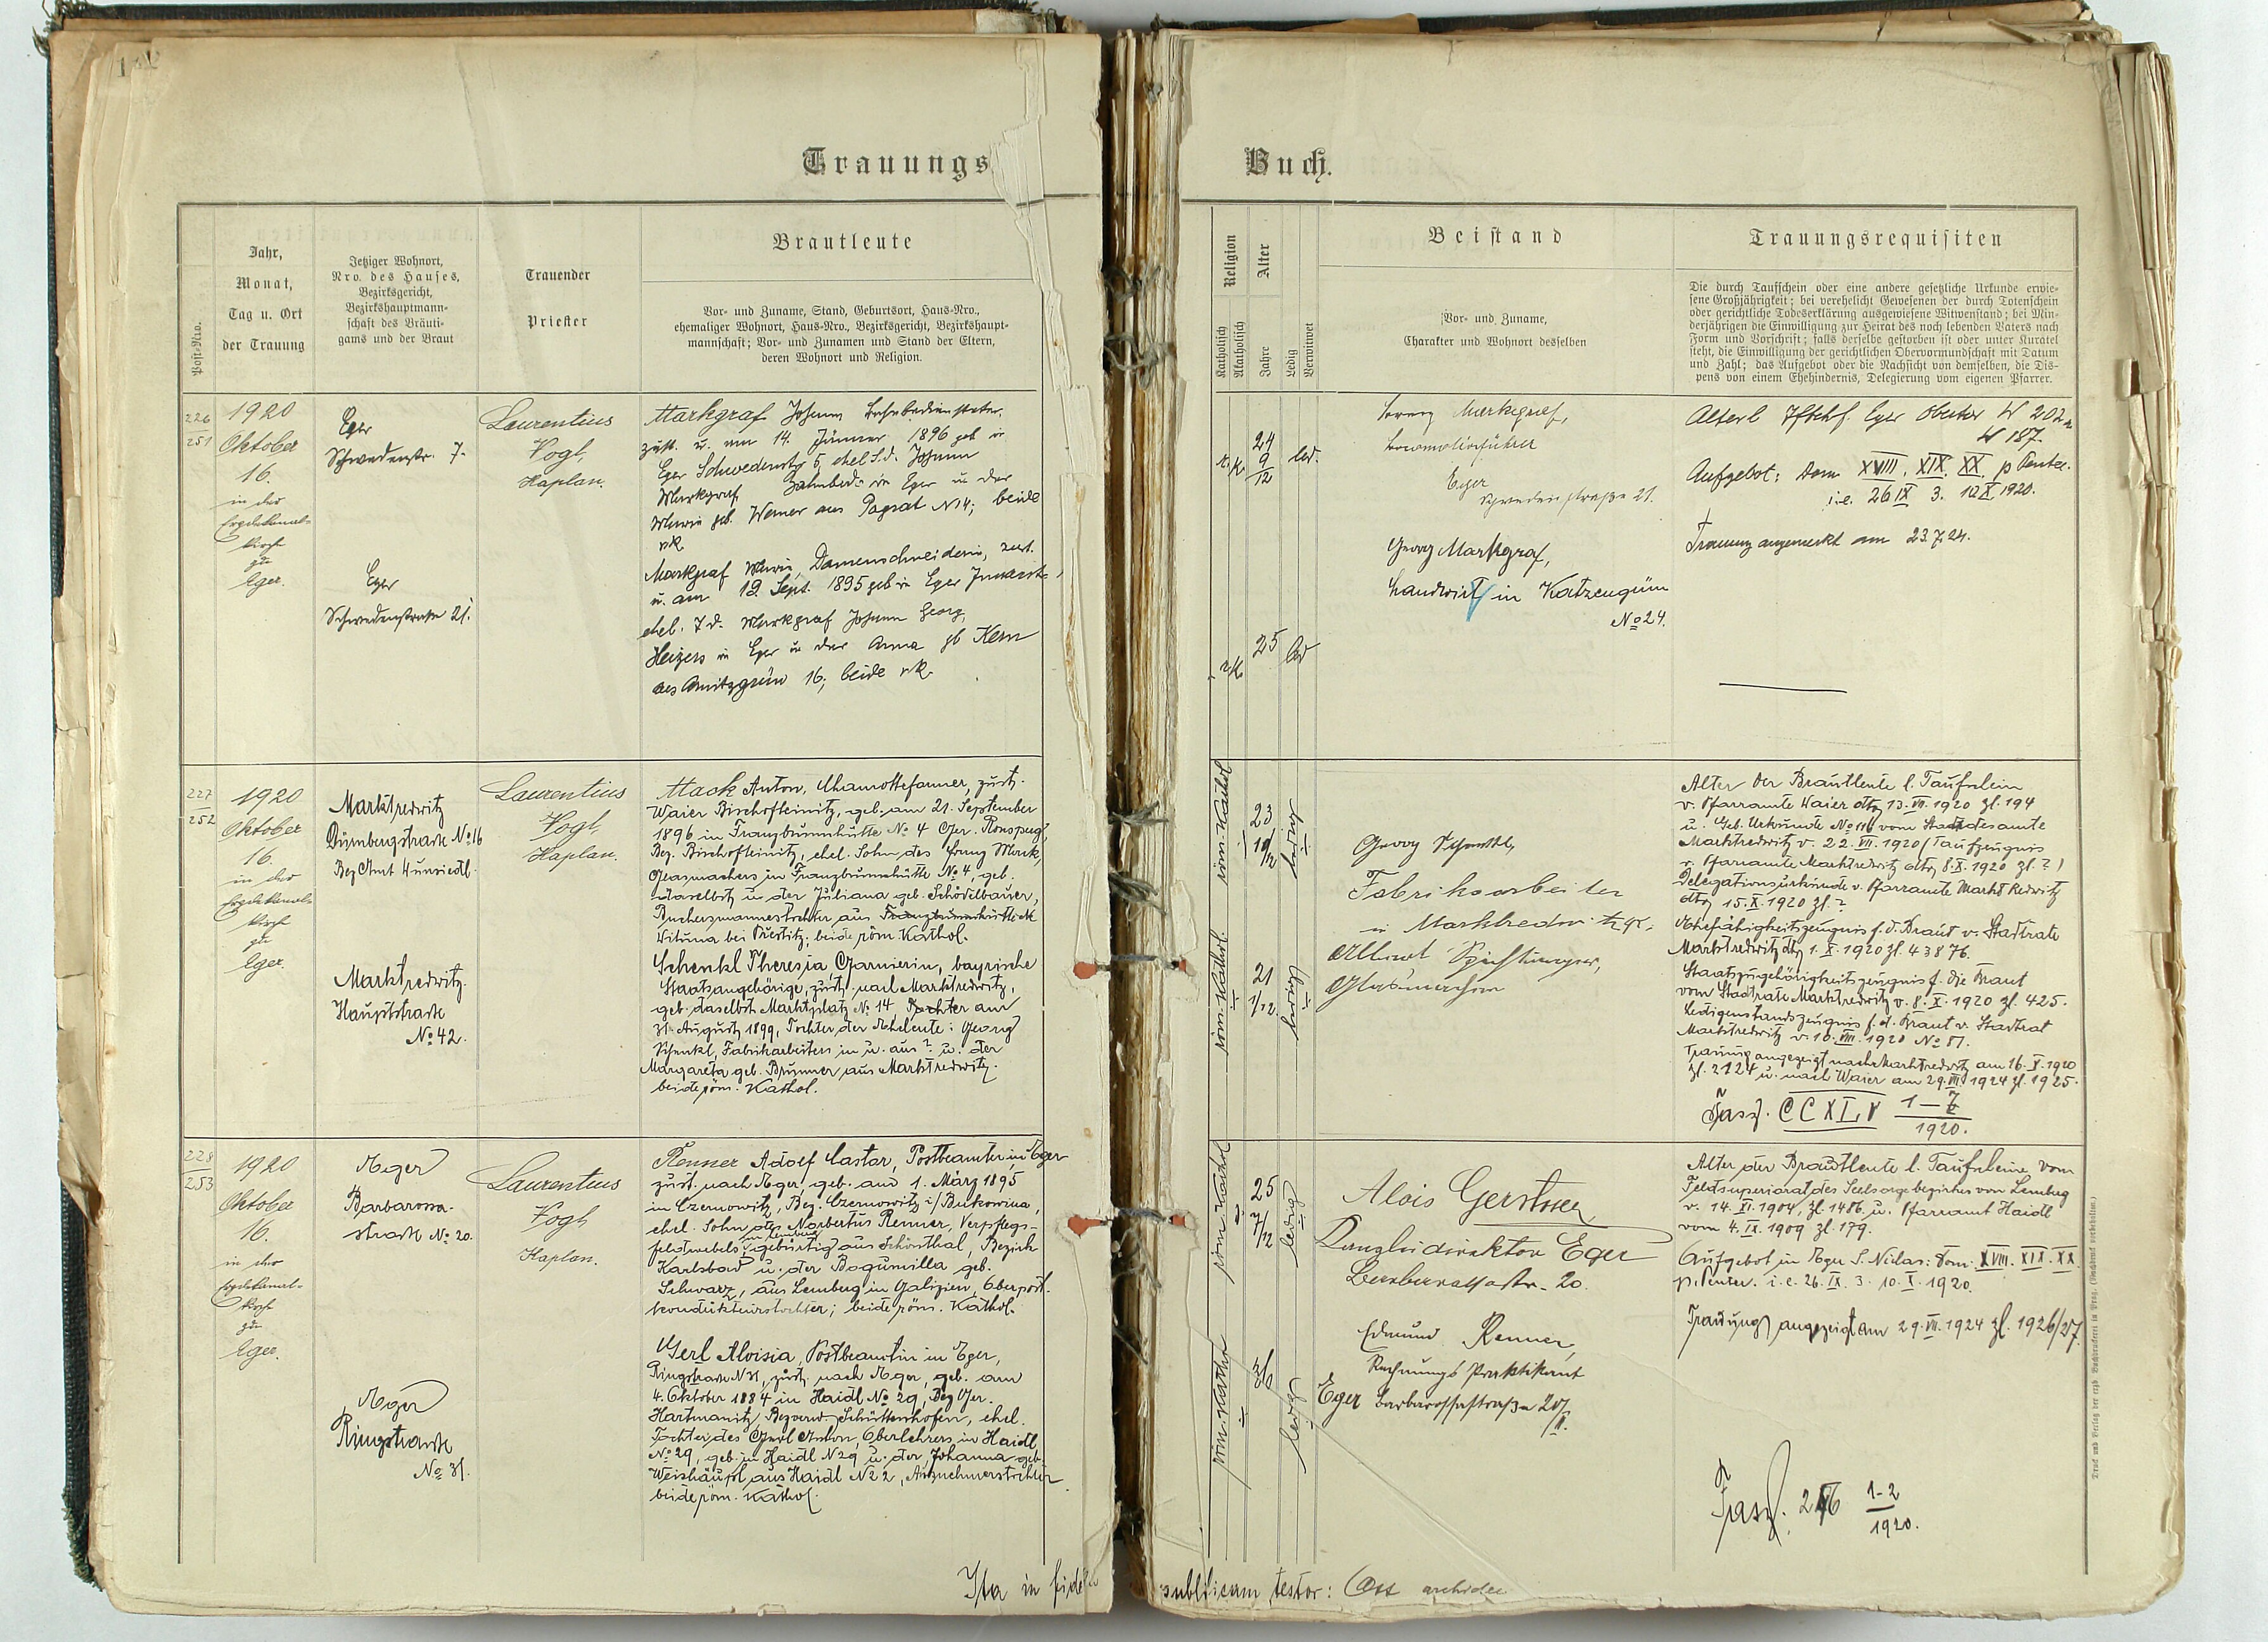 Trauungs Buch.
Post-Nro.
Jahr,
Monat,
Tag u. Ort
der Trauung
Jetziger Wohnort,
Nro. des Hauses,
Bezirksgericht,
Bezirkshauptmann-
schaft des Bräuti-
gams und der Braut
Trauender
Priester
Brautleute
Vor- und Zuname, Stand, Geburtsort, Haus-Nro.,
ehemaliger Wohnort, Haus-Nro., Bezirksgericht, Bezirkshaupt-
mannschaft; Vor- und Zunamen und Stand der Eltern,
deren Wohnort und Religion.
Religion
Katholisch
Akatholisch
Alter
Jahre
Ledig
Verwitwet
Beistand
Vor- und Zuname,
Charakter und Wohnort desselben
Trauungsrequisiten
Die durch Taufschein oder eine andere gesetzliche Urkunde erwie-
sene Großjährigkeit; bei verehelicht Gewesenen der durch Totenschein
oder gerichtliche Todeserklärung ausgewiesene Witwenstand; bei Min-
derjährigen die Einwilligung zur Heirat des noch lebenden Vaters nach
Form und Vorschrift; falls derselbe gestorben ist oder unter Kuratel
steht, die Einwilligung der gerichtlichen Obervormundschaft mit Datum
und Zahl; das Aufgebot oder die Nachsicht von demselben, die Dis-
pens von einem Ehehindernis, Delegierung vom eigenen Pfarrer.
226
251
1920
Oktober
16.
in der
Erzdekanal-
kirche
zu
Eger.
Eger
Schwedenstr. 7.
Eger
Schwedenstrasse 21.
Laurentius
Vogl,
Kaplan.
Markgraf Johann
zust. u. am 14. Jänner 1896 geb in
Eger Schwedenstr 5, ehel. S. d. Johann
Markgraf in Eger u. der
Maria geb. Werner aus Pograt N 4; beide
rk.
Markgraf Maria, Damenschneiderin, zust.
u. am 12. Sept. 1895 geb in Eger
ehel. T. d. Markgraf Johann Georg,
Heizers in Eger u der Anna gb Kern
aus 16; beide rk.
r. k.
24
9
12
led.
rk
25
led
Markgraf,
Lokomotivführer
Eger
Schwedenstraße 21.
Georg Markgraf,
Landwirt in Katzengrün
No 24.
Aufgebot: Dom XVIII. XIX. XX. p Pentec.
i. e. 26 IX 3. 10 X 1920.
Trauung angemerkt am 23.7.24.
227
252
1920
Oktober
16.
in der
Erzdekanal-
kirche
zu
Eger.
Marktredwitz
Dürnbergstrasse No 16
Bez Amt Wunsiedl.
Marktredwitz.
Hauptstrasse
No 42.
Laurentius
Vogl,
Kaplan.
Mack Anton, Chamotteformer, zust.
Waier Bischofteinitz, geb. am 21. September
1896 in Franzbrunnhütte No 4 Ger. Ronsperg,
Bez. Bischofteinitz, ehel. Sohn des Franz Mack,
Glasmachers in Franzbrunnhütte No 4, geb.
daselbst u der Juliana geb. Schödlbauer,
aus
Wituna bei Prestitz; beide röm. Kathol.
Schenkl Theresia, Garnierin, bayrische
Staatsangehörige, zust. nach Marktredwitz,
geb. daselbst Marktplatz No 14 Tochter am
31. August 1899, Tochter der Eheleute: Georg
Schenkl, Fabrikarbeiters in u. aus ? u. der
Margareta geb. Brunner aus Marktredwitz.
beide röm. Kathol.
röm. Kathol
23
1/12
ledig
röm. Kathol.
21
1/12
ledig
Georg Schenkl,
Fabriksarbeiter
in Marktredwitz
Glasmacher
Alter der Brautleute l. Taufschein
v. Pfarramte Waier dto 13. VII. 1920 Zl. 194
u. Geb. Urkunde No 116 vom Standesamte
Marktredwitz v. 22. VII. 1920 (Taufzeugnis
v. Pfarramte Marktredwitz dto 8. X. 1920 Zl. ?)
Delegationsurkunde v. Pfarramte Markt Redwitz
dto 15. X. 1920 Zl. ?
Ehefähigkeitszeugnis f. d. Braut v. Stadtrate
Marktredwitz dto 1. X. 1920 Zl. 43876.
Staatszugehörigkeitszeugnis f. die Braut
vom Stadtrate Marktredwitz v. 8. X. 1920 Zl. 425.
Ledigenstandszeugnis f. d. Braut v. Stadtrat
Marktredwitz v. 10. VIII. 1920 No 81.
Trauung angezeigt nach Marktredwitz am 16. X. 1920
Zl. 2124 u. nach Waier am 29. VII. 1924 Zl. 1925.
Fasz. CCXLV 1-7
1920.
228
253
1920
Oktober
16.
in der
Erzdekanal-
kirche
zu
Eger.
Eger
Barbarossa-
strasse No 20.
Eger
Ringstrasse
No 31.
Laurentius
Vogl,
Kaplan.
Renner Adolf Castor, Postbeamter in Eger
zust. nach Eger, geb. am 1. März 1895
in Czernowitz, Bez. Czernowitz i/ Bukowina,
ehel. Sohn des Norbertus Renner, Verpflegs-
feldwebels in Lemberg gebürtig aus Schönthal, Bezirk
Karlsbad u. der Bogumilla geb.
Schwarz, aus Lemberg in Galizien, Oberpost-
kondukteurstochter; beide röm. Kathol.
Gerl Aloisia, Postbeamtin in Eger,
Ringstrasse N 31, zust. nach Eger, geb. am
4. Oktober 1884 in Haidl No 29, Bez Ger.
Hartmanitz, Bezverw. Schüttenhofen, ehel.
Tochter des Gerl Anton, Oberlehrers in Haidl
No 29, geb. in Haidl N 29 u. der Johanna geb.
Weishäupl aus Haidl No 22, Ausnehmerstochter
beide röm. Kathol.
röm. Kathol
25
7/12
ledig
röm. Kathol
36
ledig
Alois Gerstner
Kanzleidirektor Eger
Barbarossastr. 20.
Edmund Renner,
Rechnungs Praktikant
Eger Barbarossastraße 20/II.
Alter der Brautleute l. Taufscheine vom
Feldsuperiorat des Seelsorgebezirkes von Lemberg
v. 14. XI. 1904, Zl. 1486. u. Pfarramt Haidl
vom 4. IX. 1909 Zl. 179.
Aufgebot in Eger S. Niclas: Dom: XVIII. XIX. XX.
p. Pentec. i. e. 26. IX. 3. 10. X. 1920.
Trauung angezeigt am 29. VII. 1924 Zl. 1926/27.
Fasz. 246 1-2
1920.
Ita in fidem publicam testor:
Druck und Verlag der erzb. Buchdruckerei in Prag. (Nachdruck vorbehalten.)